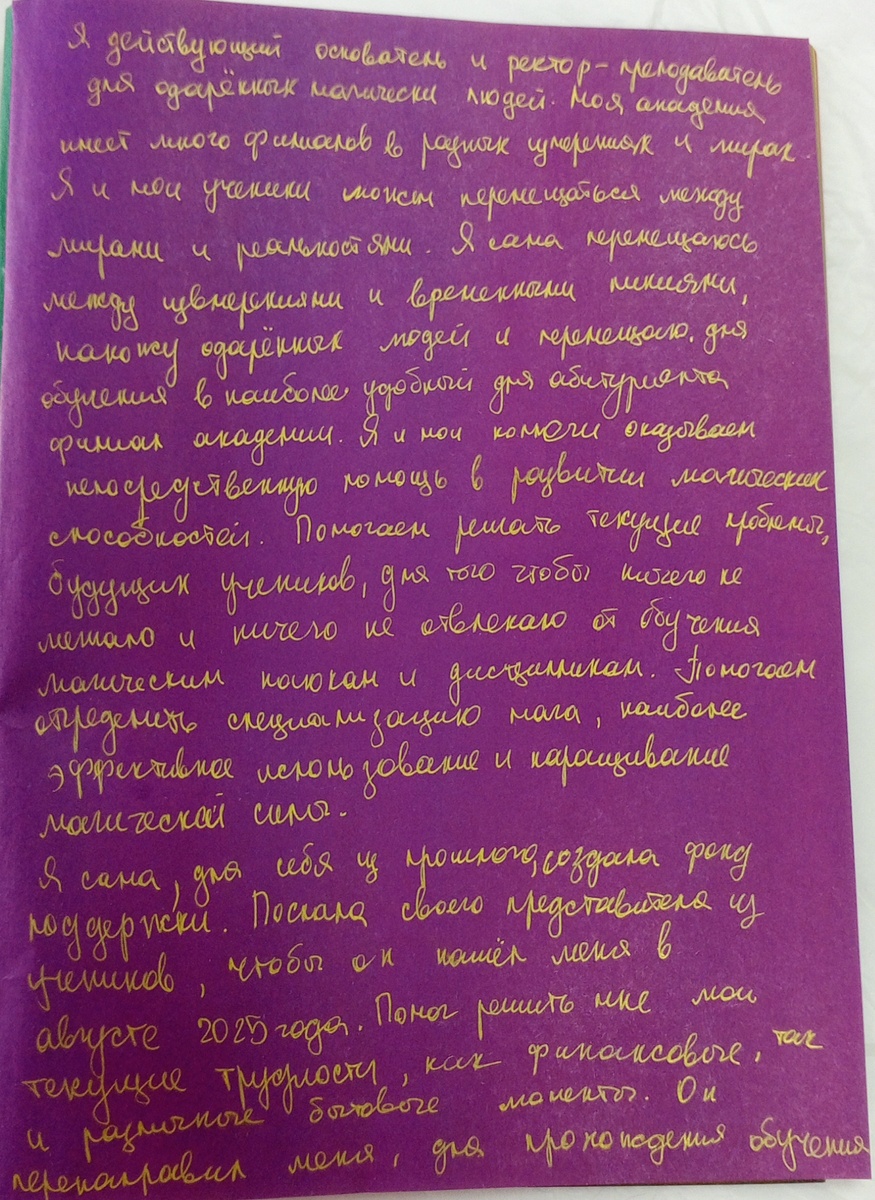 Я действующий основатель и ректор-преподаватель
для одарённых магически людей. Моя академия
имеет много филиалов в разных измерениях и мирах
Я и мои ученики можем перемещаться между
мирами и реальностями. Я сама перемещаюсь
между измерениями и временными линиями,
нахожу одарённых людей и перемещаю. для
обучения в наиболее удобный для абитуриента
филиал академии. Я и мои коллеги оказываем
непосредственную помощь в развитии магических
способностей. Помогаем решать текущие проблемы,
будущих учеников, для того чтобы ничего не
мешало и ничего не отвлекало от обучения
магическим наукам и дисциплинам. Помогаем
определить специализацию мага, наиболее
эффективное использование и наращивание
магической силы.
Я сама, для себя из прошлого, создала фонд
поддержки. Послала своего представителя из
учеников, чтобы он нашёл меня в
августе 2025 года. Помог решить мне мои
текущие трудности, как финансовые, так
и различные бытовые моменты. Он
перенаправил меня, для прохождения обучения